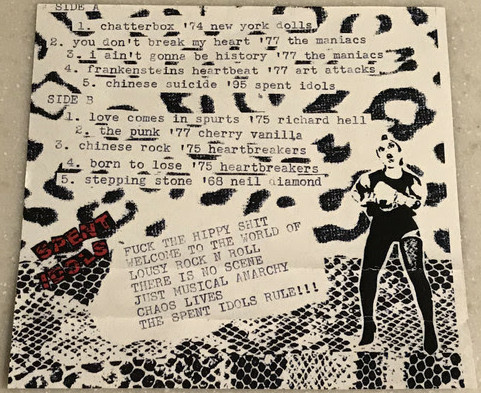 SIDE A
1. chatterbox '74 new york dolls
2. you don't break my heart '77 the maniacs
3. i ain't gonna be history '77 the maniacs
4. frankensteins heartbeat '77 art attacks
5. chinese suicide '95 spent idols
SIDE B
1. love comes in spurts '75 richard hell
2. the punk '77 cherry vanilla
3. chinese rock '75 heartbreakers
4. born to lose '75 heartbreakers
5. stepping stone '68 neil diamond
SPENT
IDOLS
FUCK THE HIPPY SHIT
WELCOME TO THE WORLD OF
LOUSY ROCK N ROLL
THERE IS NO SCENE
JUST MUSICAL ANARCHY
CHAOS LIVES
THE SPENT IDOLS RULE!!!